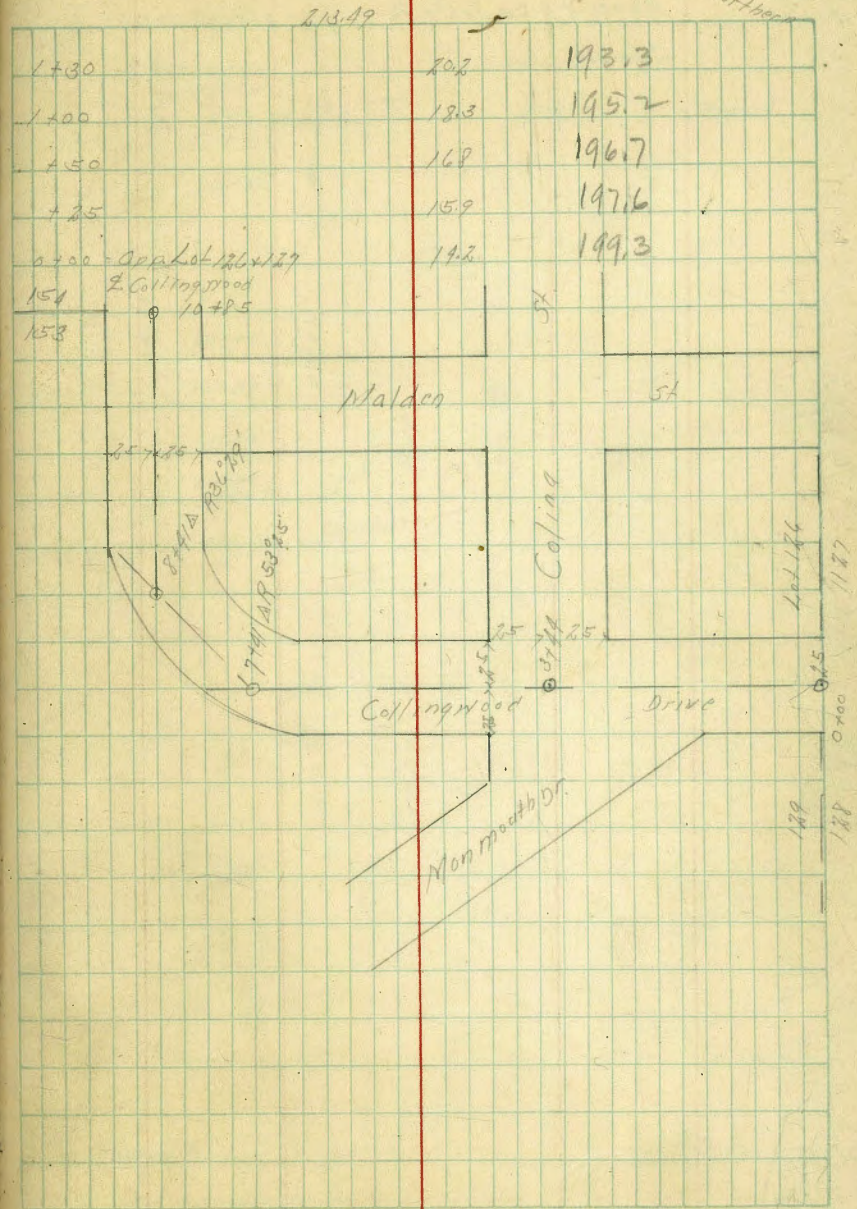 213.49
1+30 20.2 193.3
1+00 18.3 195.2
+50 16.8 196.7
+25 15.9 197.6
0+00 - Opp Lot 126+127 14.2 199.3
℄ Collingwood
154
10+85
153
St
Malden St
25 25
8+41 Δ R36°29'
7+91 ΔR 53°25'
Coling
Lot 126
1127
25 25
25 25
3+44
25
Collingwood Drive
0+00
Monmouth Dr.
129
128